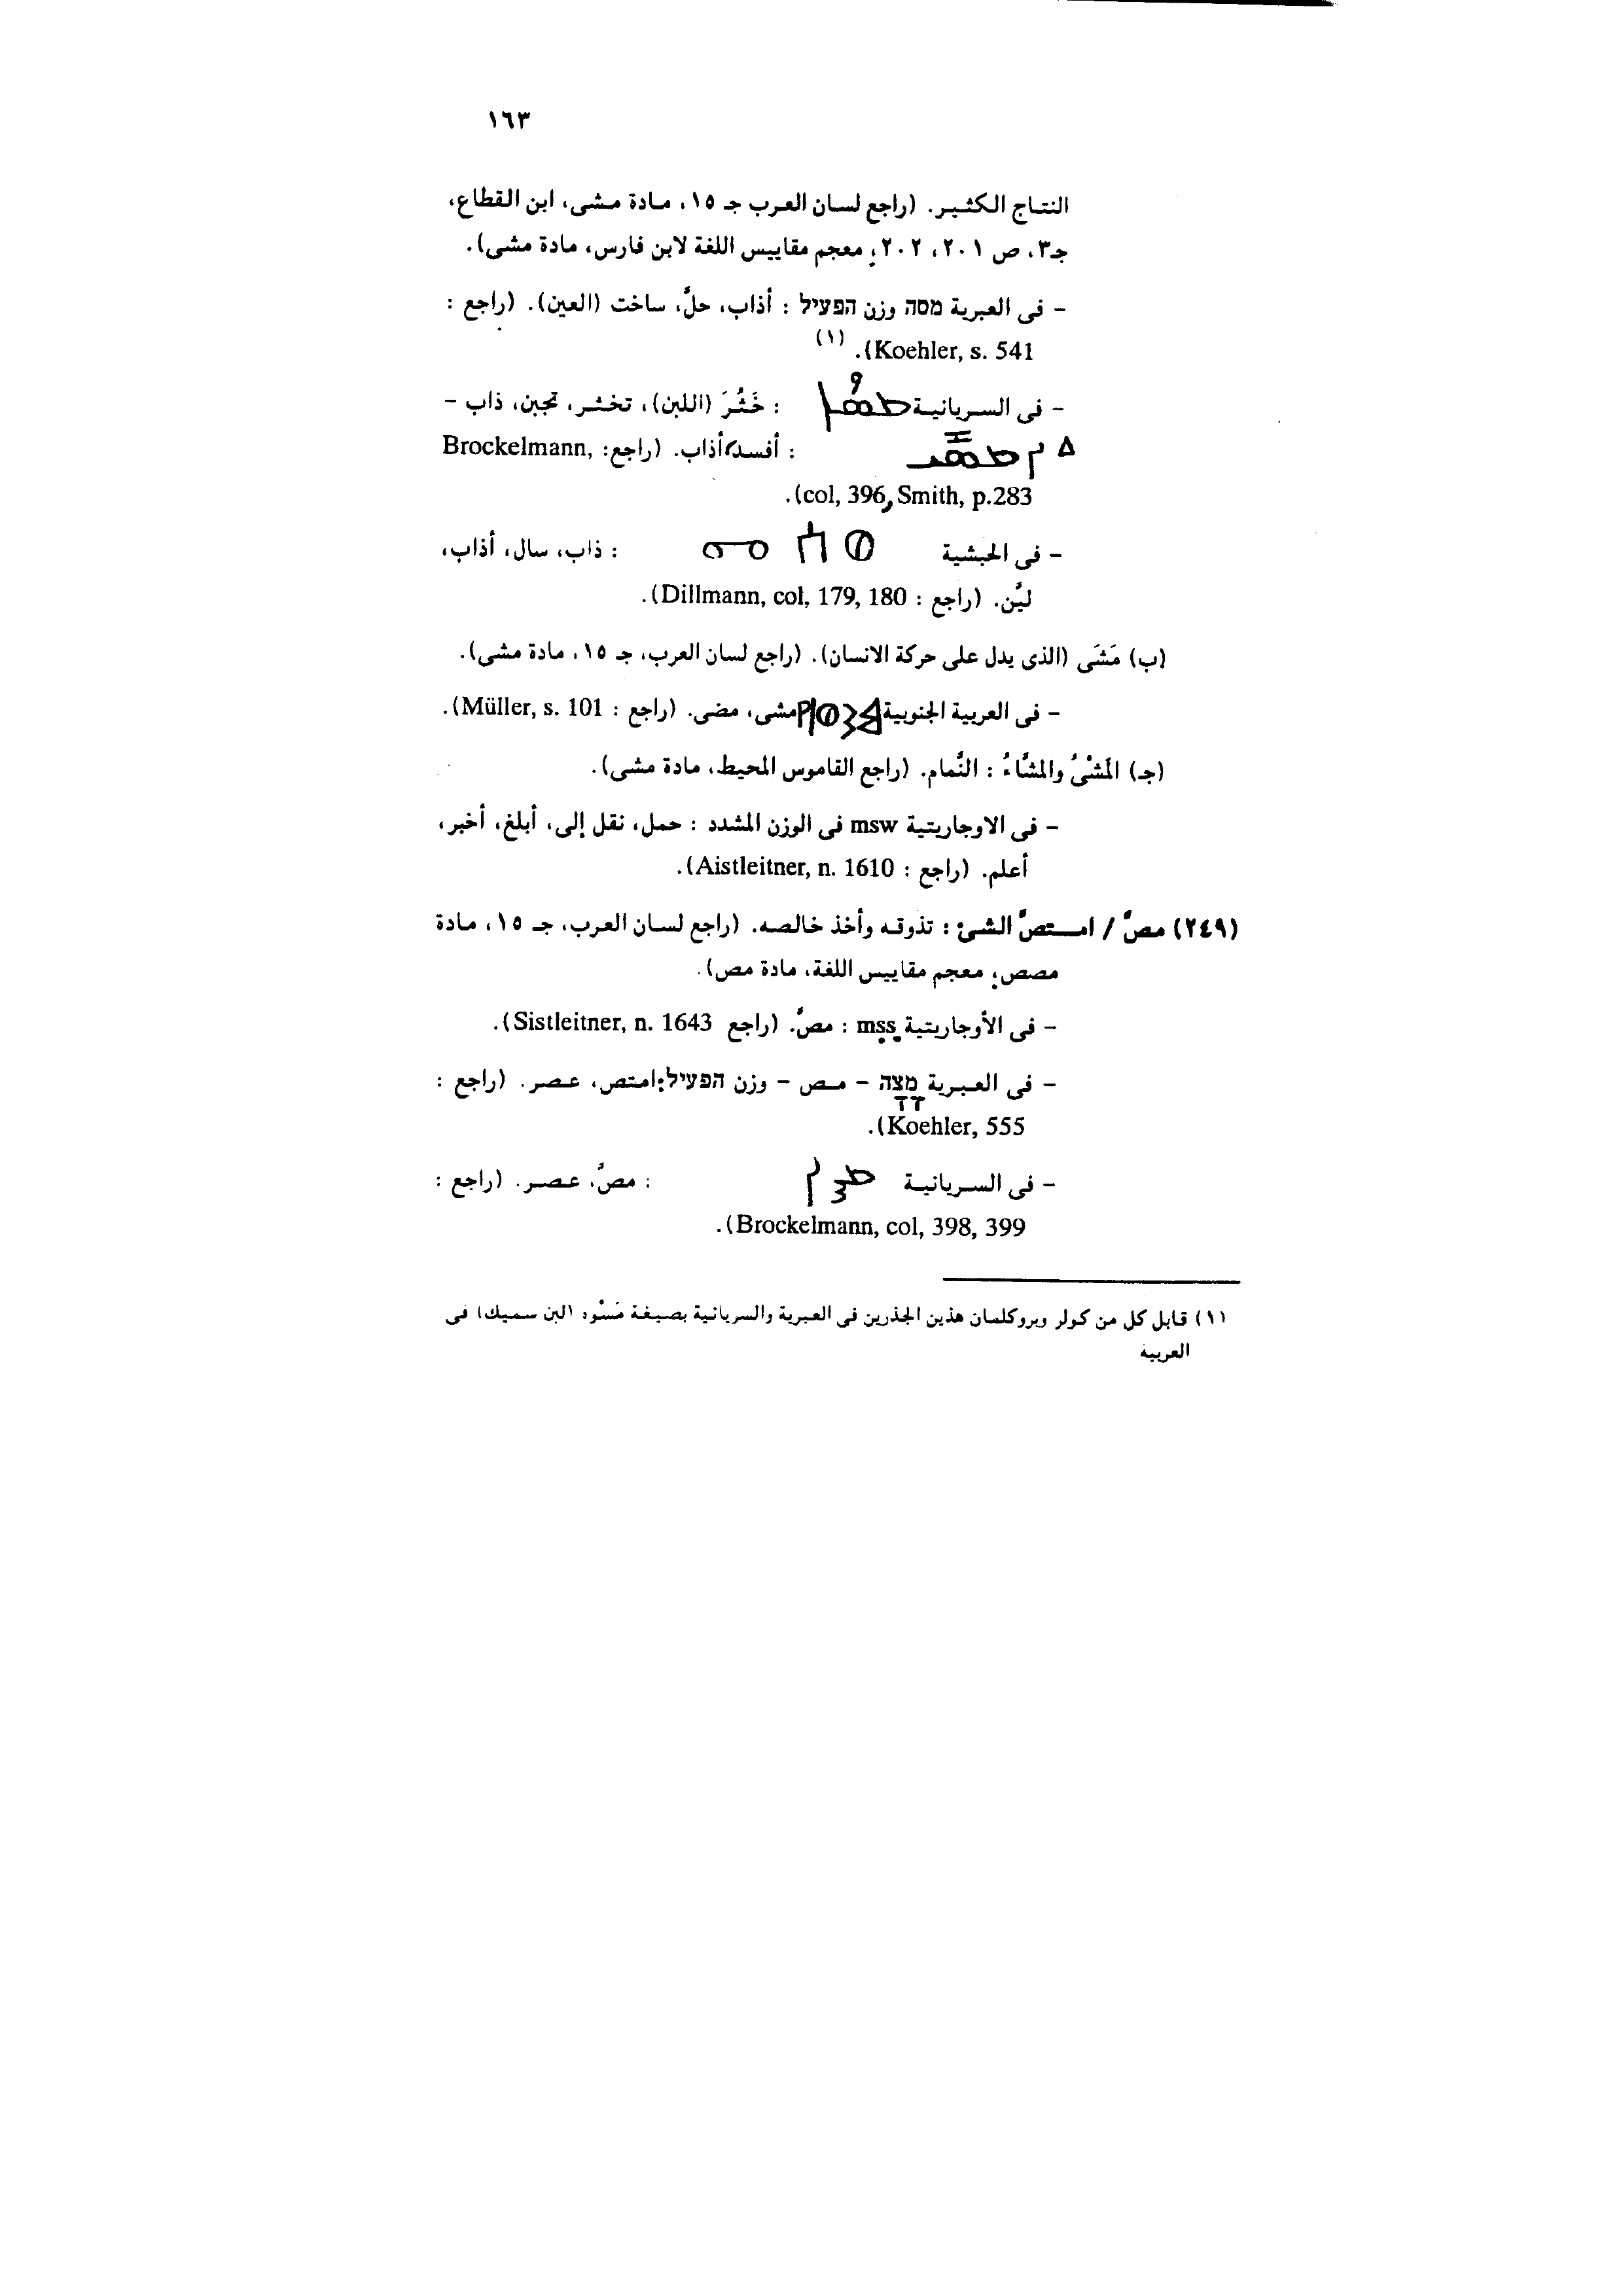 ١٦٣
النتاج الكثير. (راجع لسان العرب جـ ١٥، مادة مشى، ابن القطاع،
جـ٣، ص ٢٠١، ٢٠٢؛ معجم مقاييس اللغة لابن فارس، مادة مشى).
- فى العبرية מסה وزن הפעיל : أذاب، حلَّ، ساخت (العين). (راجع :
Koehler, s. 541). (١)
- فى السريانية : خَثُرَ (اللبن)، تخثر، تجبن، ذاب -
: أفسد، أذاب. (راجع: Brockelmann,
col, 396, Smith, p.283).
- فى الحبشية : ذاب، سال، أذاب،
ليَّن. (راجع : Dillmann, col, 179, 180).
(ب) مَشَى (الذى يدل على حركة الانسان). (راجع لسان العرب، جـ ١٥، مادة مشى).
- فى العربية الجنوبية مشى، مضى. (راجع : Müller, s. 101).
(جـ) المَشْىُ والمشَّاءُ : النَّمام. (راجع القاموس المحيط، مادة مشى).
- فى الاوجاريتية msw فى الوزن المشدد : حمل، نقل إلى، أبلغ، أخبر،
أعلم. (راجع : Aistleitner, n. 1610).
(٢٤٩) مصَّ / امـتصَّ الشئ : تذوقه وأخذ خالصه. (راجع لسان العرب، جـ ١٥، مادة
مصص؛ معجم مقاييس اللغة، مادة مص).
- فى الأوجاريتية mṣṣ : مصَّ. (راجع Sistleitner, n. 1643).
- فى العبرية מָצָה - مص - وزن הפעיל: امتص، عصر. (راجع :
Koehler, 555).
- فى السريانية : مصَّ، عصر. (راجع :
Brockelmann, col, 398, 399).
(١) قابل كل من كولر وبروكلمان هذين الجذرين فى العبرية والسريانية بصيغة مَسْوه (لبن سميك) فى
العربية